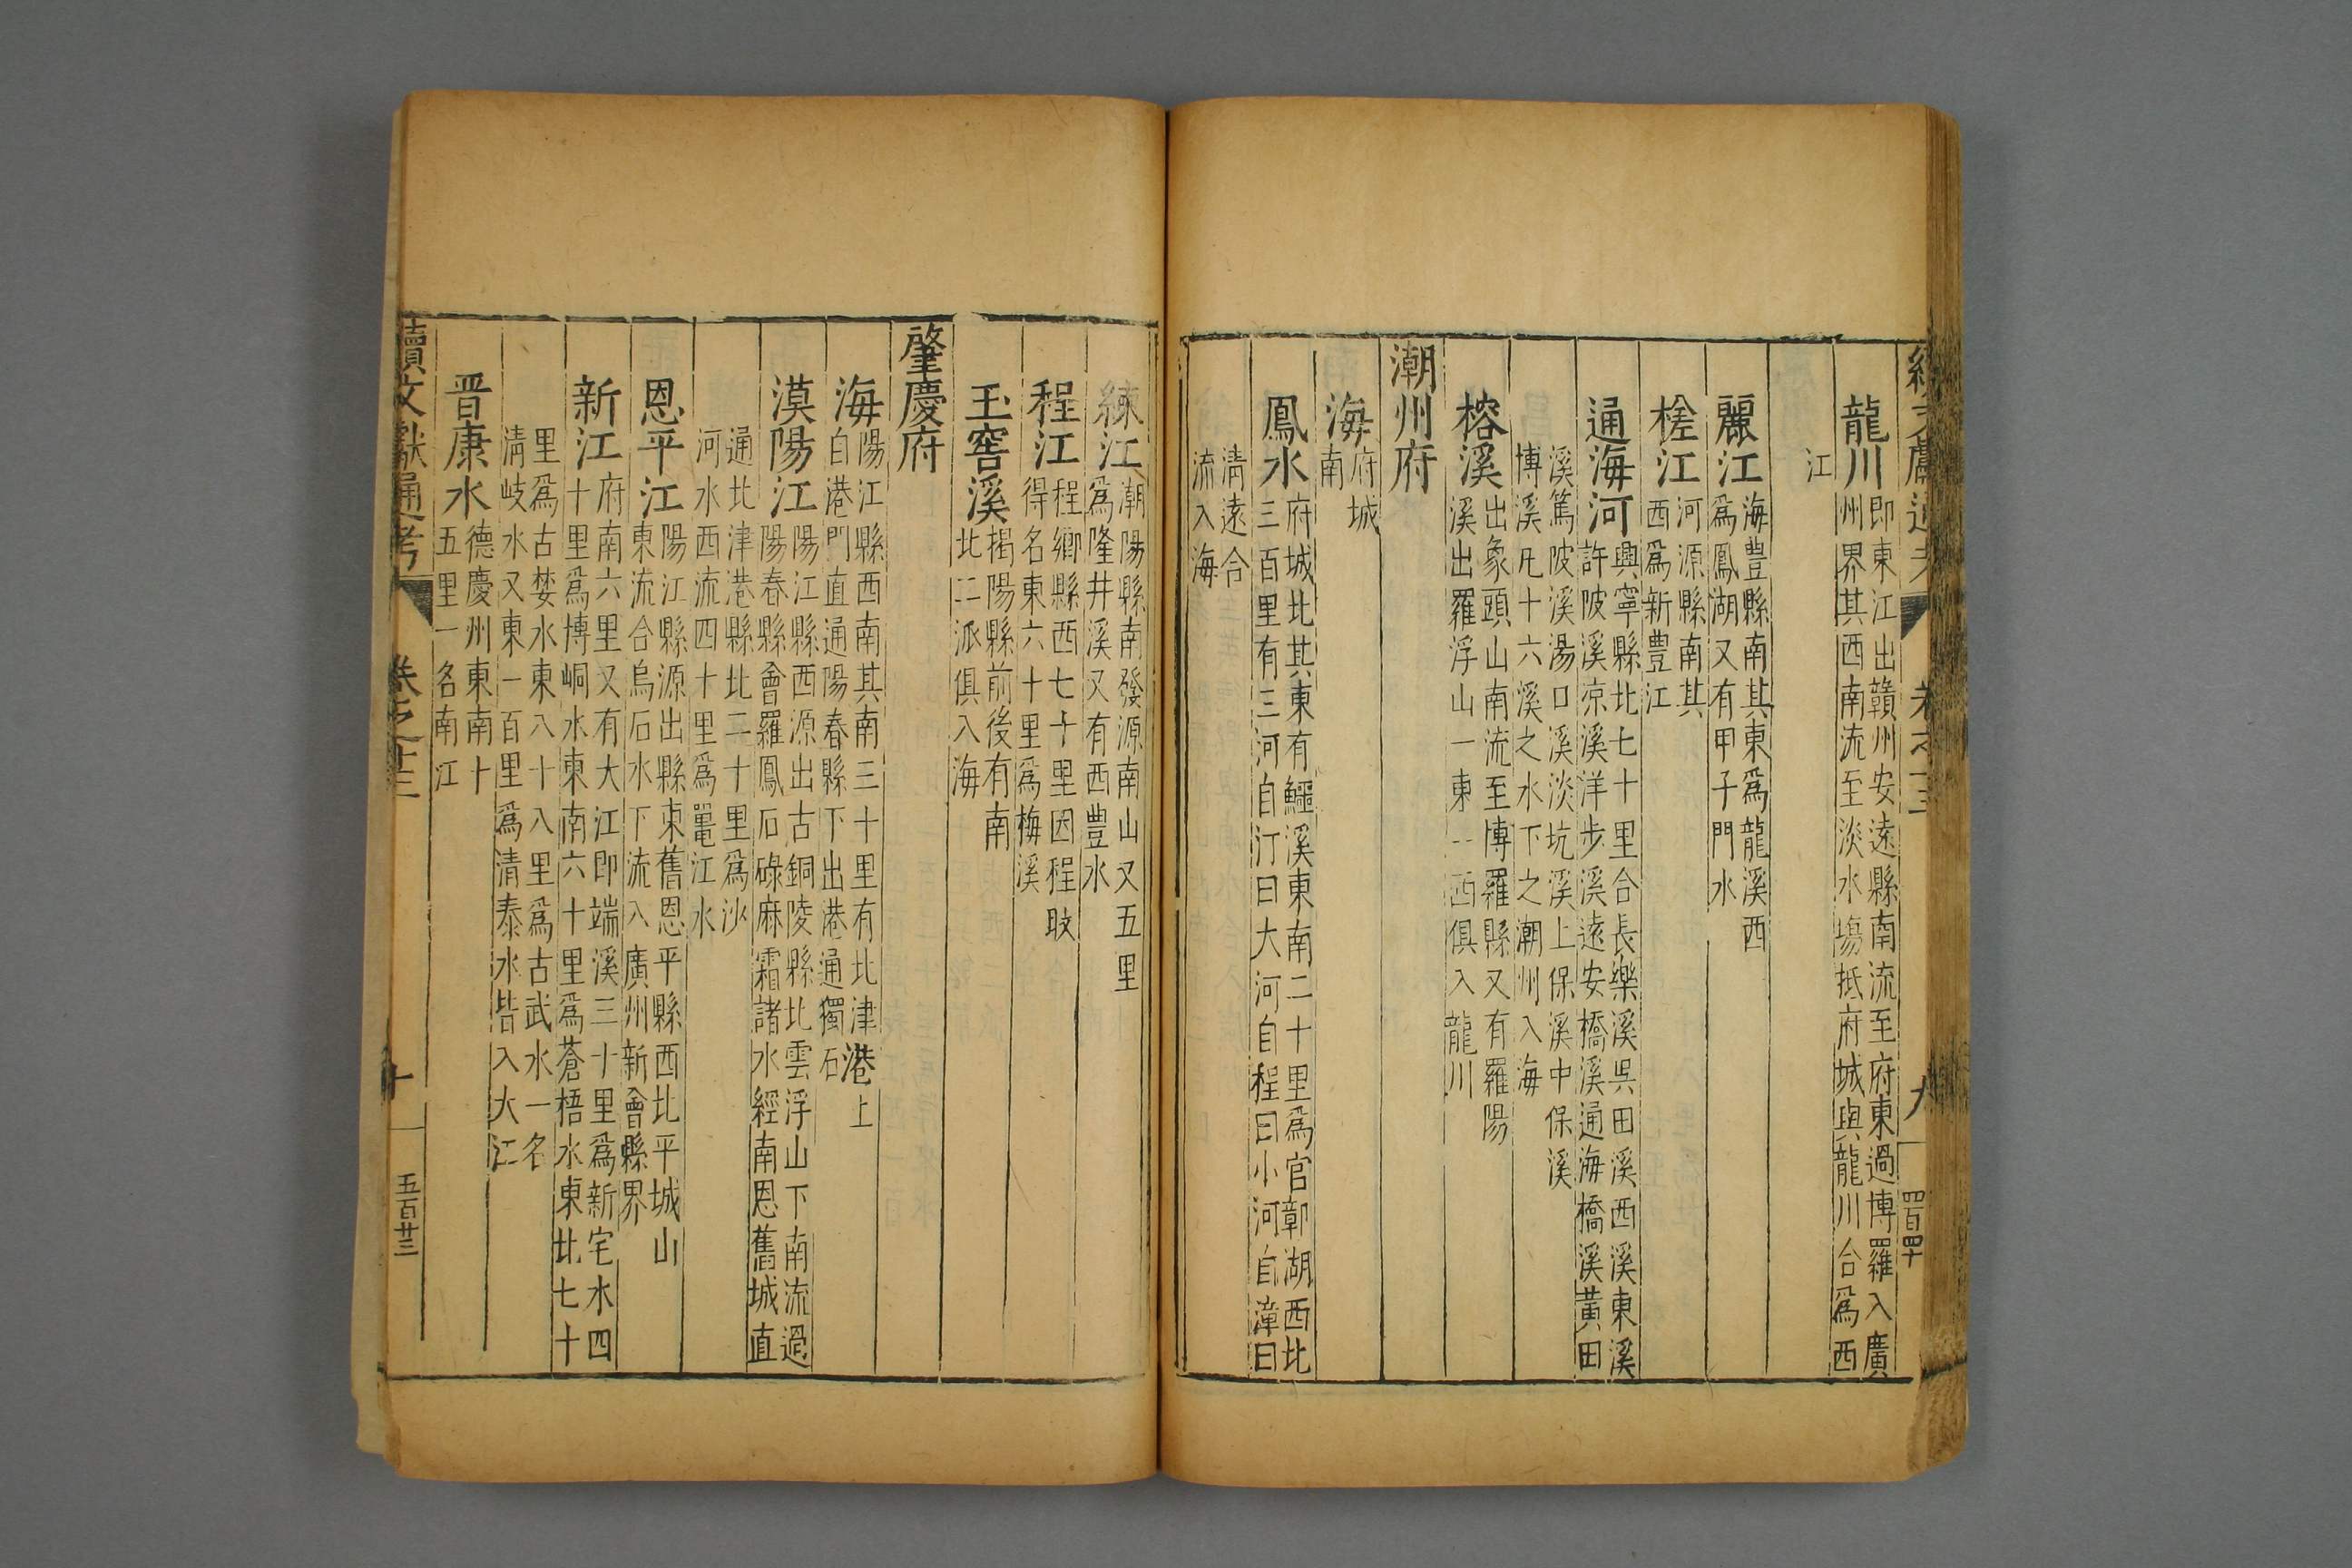 續文獻通考 卷之十三 九 四百四十
龍川即東江出贛州安遠縣南流至府東過博羅入廣
州界其西南流至淡水場抵府城與龍川合爲西
江
麗江海豊縣南其東爲龍溪西
爲鳳湖又有甲子門水
槎江河源縣南其
西爲新豊江
通海河興寧縣北七十里合長樂溪吳田溪西溪東溪
許陂溪凉溪洋步溪遠安橋溪通海橋溪黃田
溪篤陂溪湯口溪淡坑溪上保溪中保溪
博溪凡十六溪之水下之潮州入海
榕溪出象頭山南流至博羅縣又有羅陽
溪出羅浮山一東一西俱入龍川
潮州府
海府城
南
鳳水府城北其東有鱷溪東南二十里爲官鄣湖西北
三百里有三河自汀曰大河自程曰小河自漳曰
清遠合
流入海
練江潮陽縣南發源南山又五里
爲隆井溪又有西豊水
程江程鄉縣西七十里因程旼
得名東六十里爲梅溪
玉窖溪揭陽縣前後有南
北二派俱入海
肇慶府
海陽江縣西南其南三十里有北津港上
自港門直通陽春縣下出港通獨石
漠陽江陽江縣西源出古銅陵縣北雲浮山下南流過
陽春縣會羅鳳石碌麻霜諸水經南恩舊城直
通北津港縣北二十里爲沙
河水西流四十里爲鼉江水
恩平江陽江縣源出縣東舊恩平縣西北平城山
東流合烏石水下流入廣州新會縣界
新江府南六里又有大江即端溪三十里爲新宅水四
十里爲博峒水東南六十里爲蒼梧水東北七十
里爲古婪水東八十八里爲古武水一名
清岐水又東一百里爲清泰水皆入大江
晋康水德慶州東南十
五里一名南江
續文獻通考 卷之十三 十 五百廿三